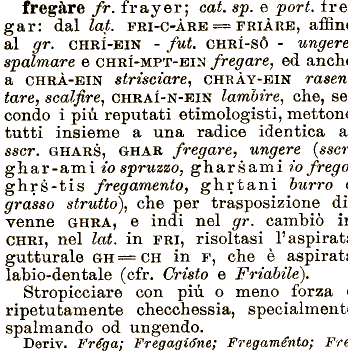 fregàre fr. frayer; cat. sp. e port. fre
gar: dal lat. FRI-C-ÀRE = FRIÀRE, affine
al gr. CHRÍ-EIN - fut. CHRÍ-SÔ - ungere
spalmare e CHRÍ-MPT-EIN fregare, ed anche
a CHRÀ-EIN strisciare, CHRÀY-EIN rasen
tare, scalfire, CHRAÍ-N-EIN lambire, che, se
condo i più reputati etimologisti, metton
tutti insieme a una radice identica a
sscr. GHARṢ, GHAR fregare, ungere (sscr
ghar-ami io spruzzo, gharṡami io frego
ghṛṡ-tis fregamento, ghṛtani burro
grasso strutto), che per trasposizione di
venne GHRA, e indi nel gr. cambiò in
CHRI, nel lat. in FRI, risoltasi l'aspirat
gutturale GH = CH in F, che è aspirat
labio-dentale (cfr. Cristo e Friabile).
Stropicciare con più o meno forza
ripetutamente checchessia, specialment
spalmando od ungendo.
Deriv. Fréga; Fregagióne; Fregaménto; Fre